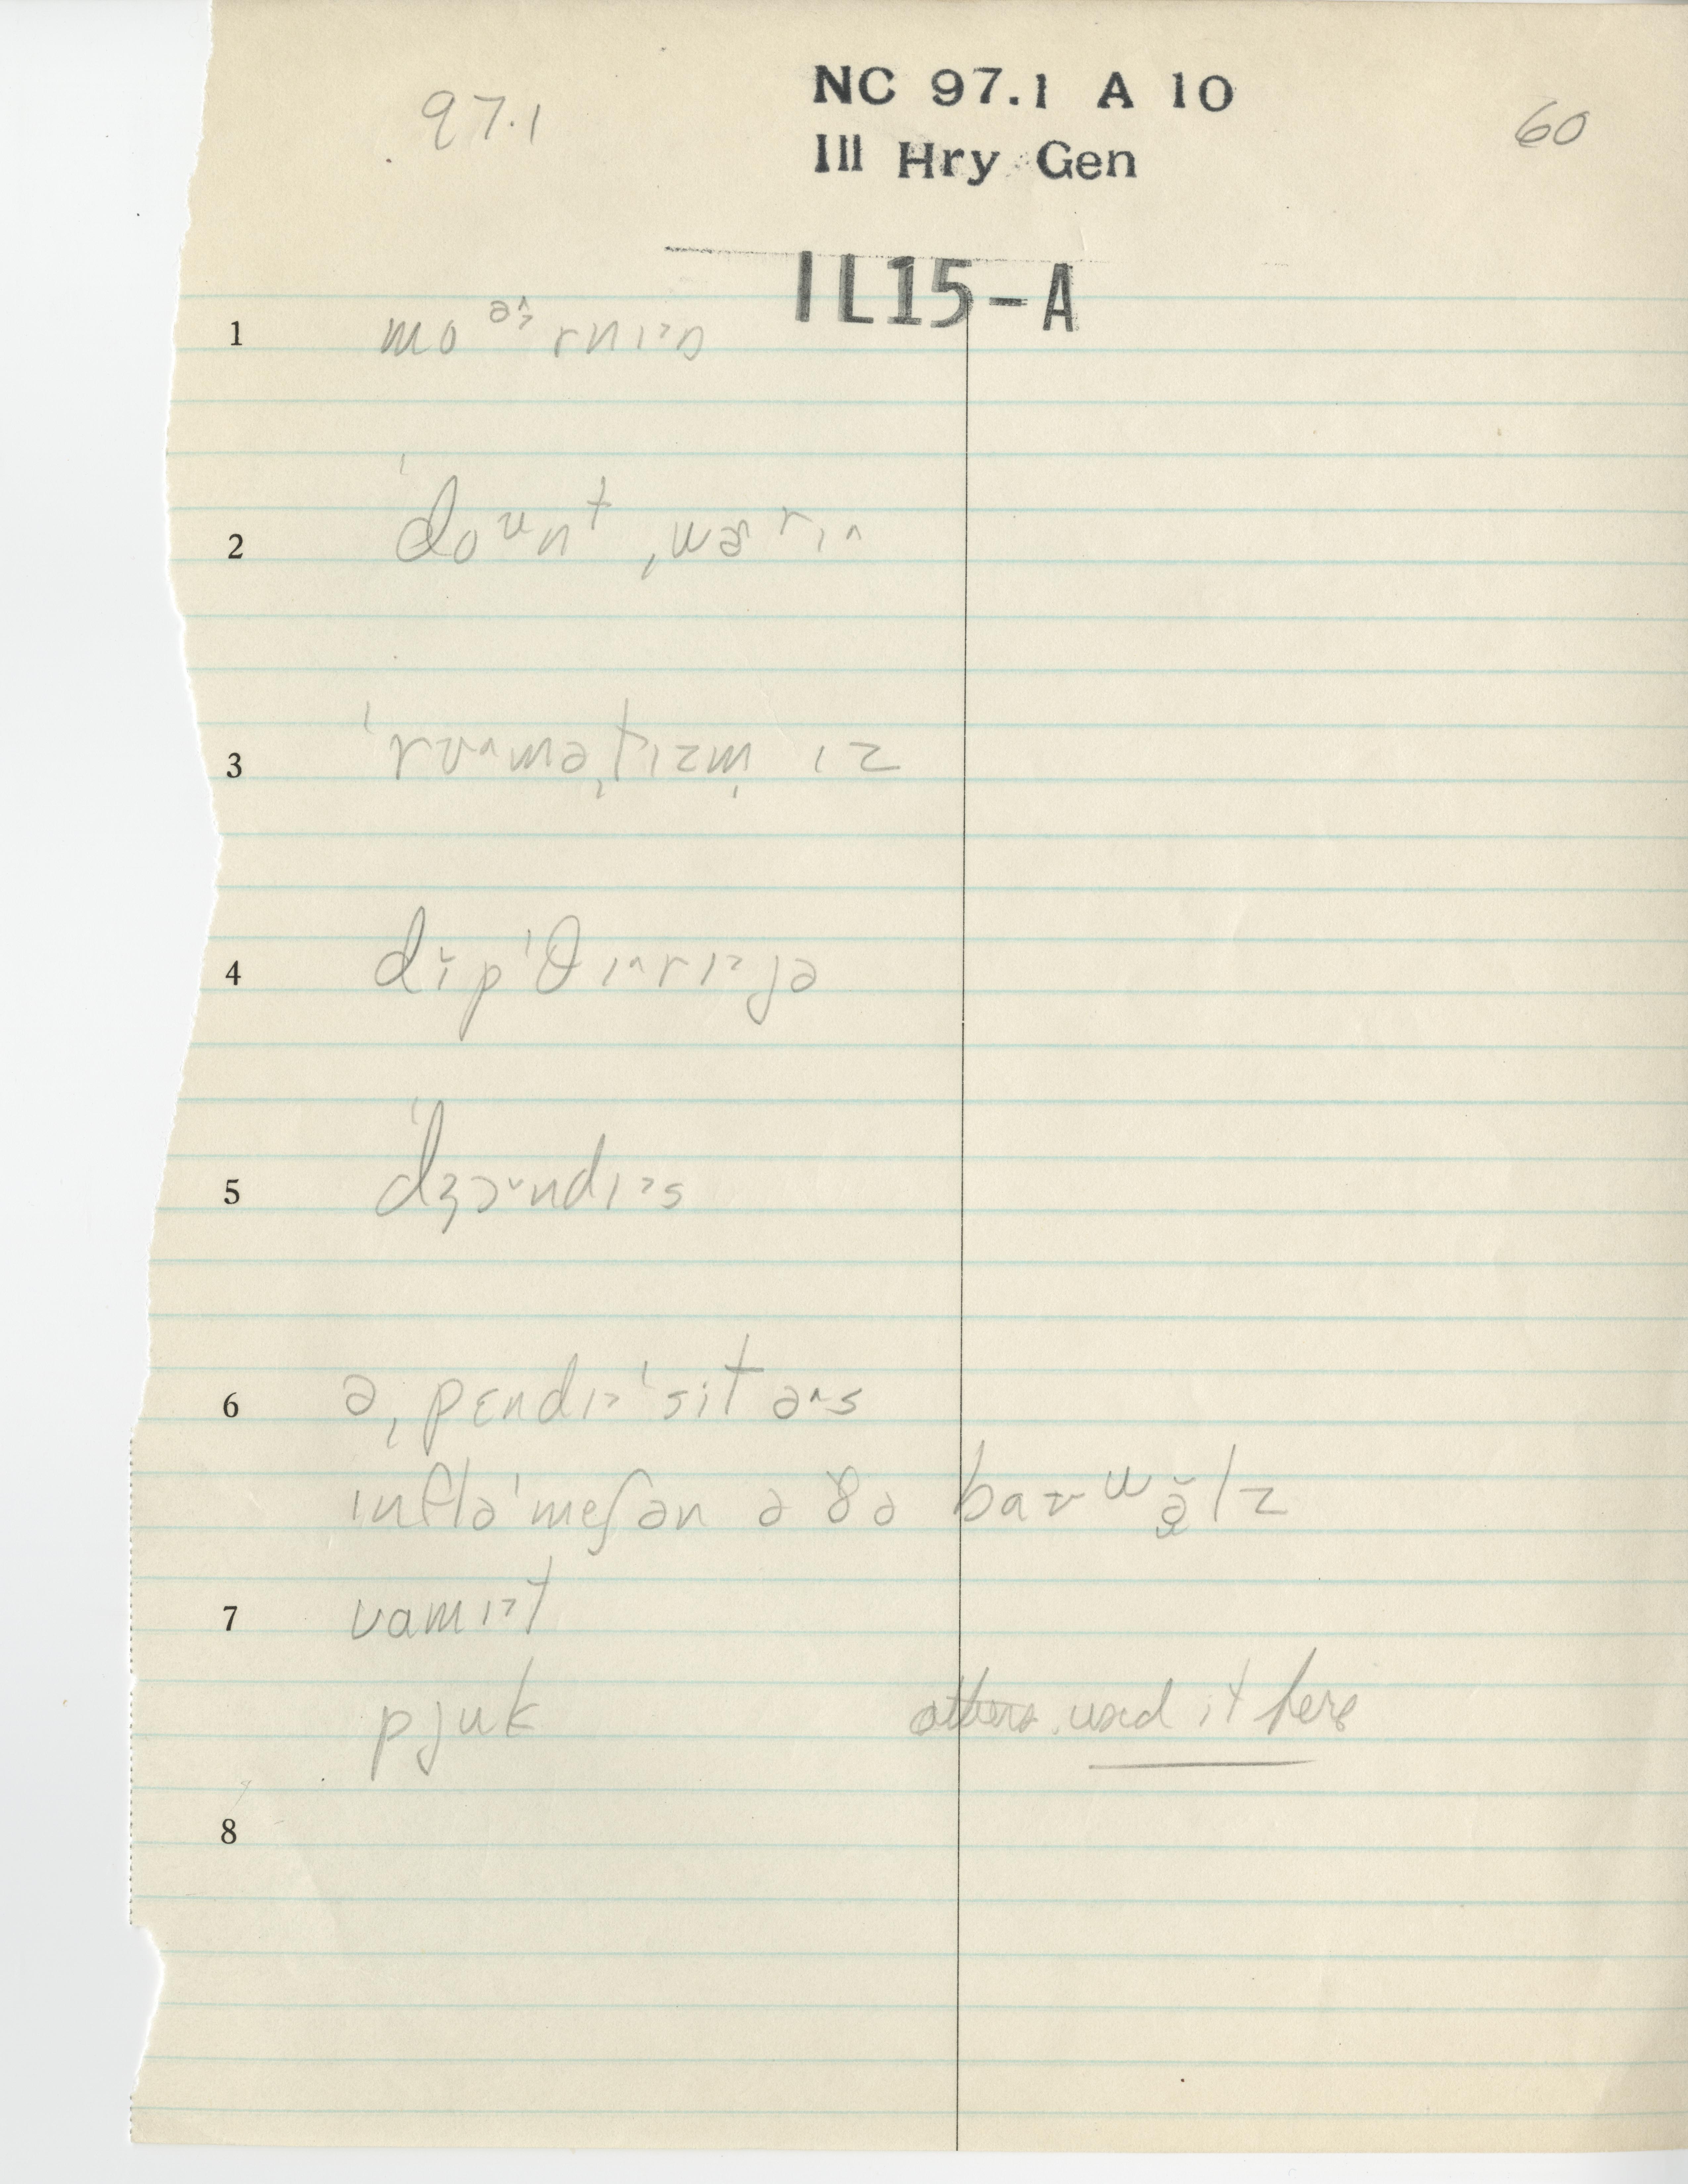 97.1 NC 97.1 A 10 60
Ill Hry Gen
IL15-A
1 moᵊ˄˒rnɪ˒n
2 ˈdoᶷnᵗ ˌwɚrɪn
3 ˈrʊ˄məˌtɪzm̩ ɪz
4 dɪ̆pˈθɪ˄rɪ˒jə
5 ˈdʒɔ˅ndɪ˒s
6 əˌpɛndɪ˒ˈsitə˄s
ɪnfləˈmeʃən ə ðə baᶷwə̆lz
7 vamɪ˒t
pjuk others used it here
8